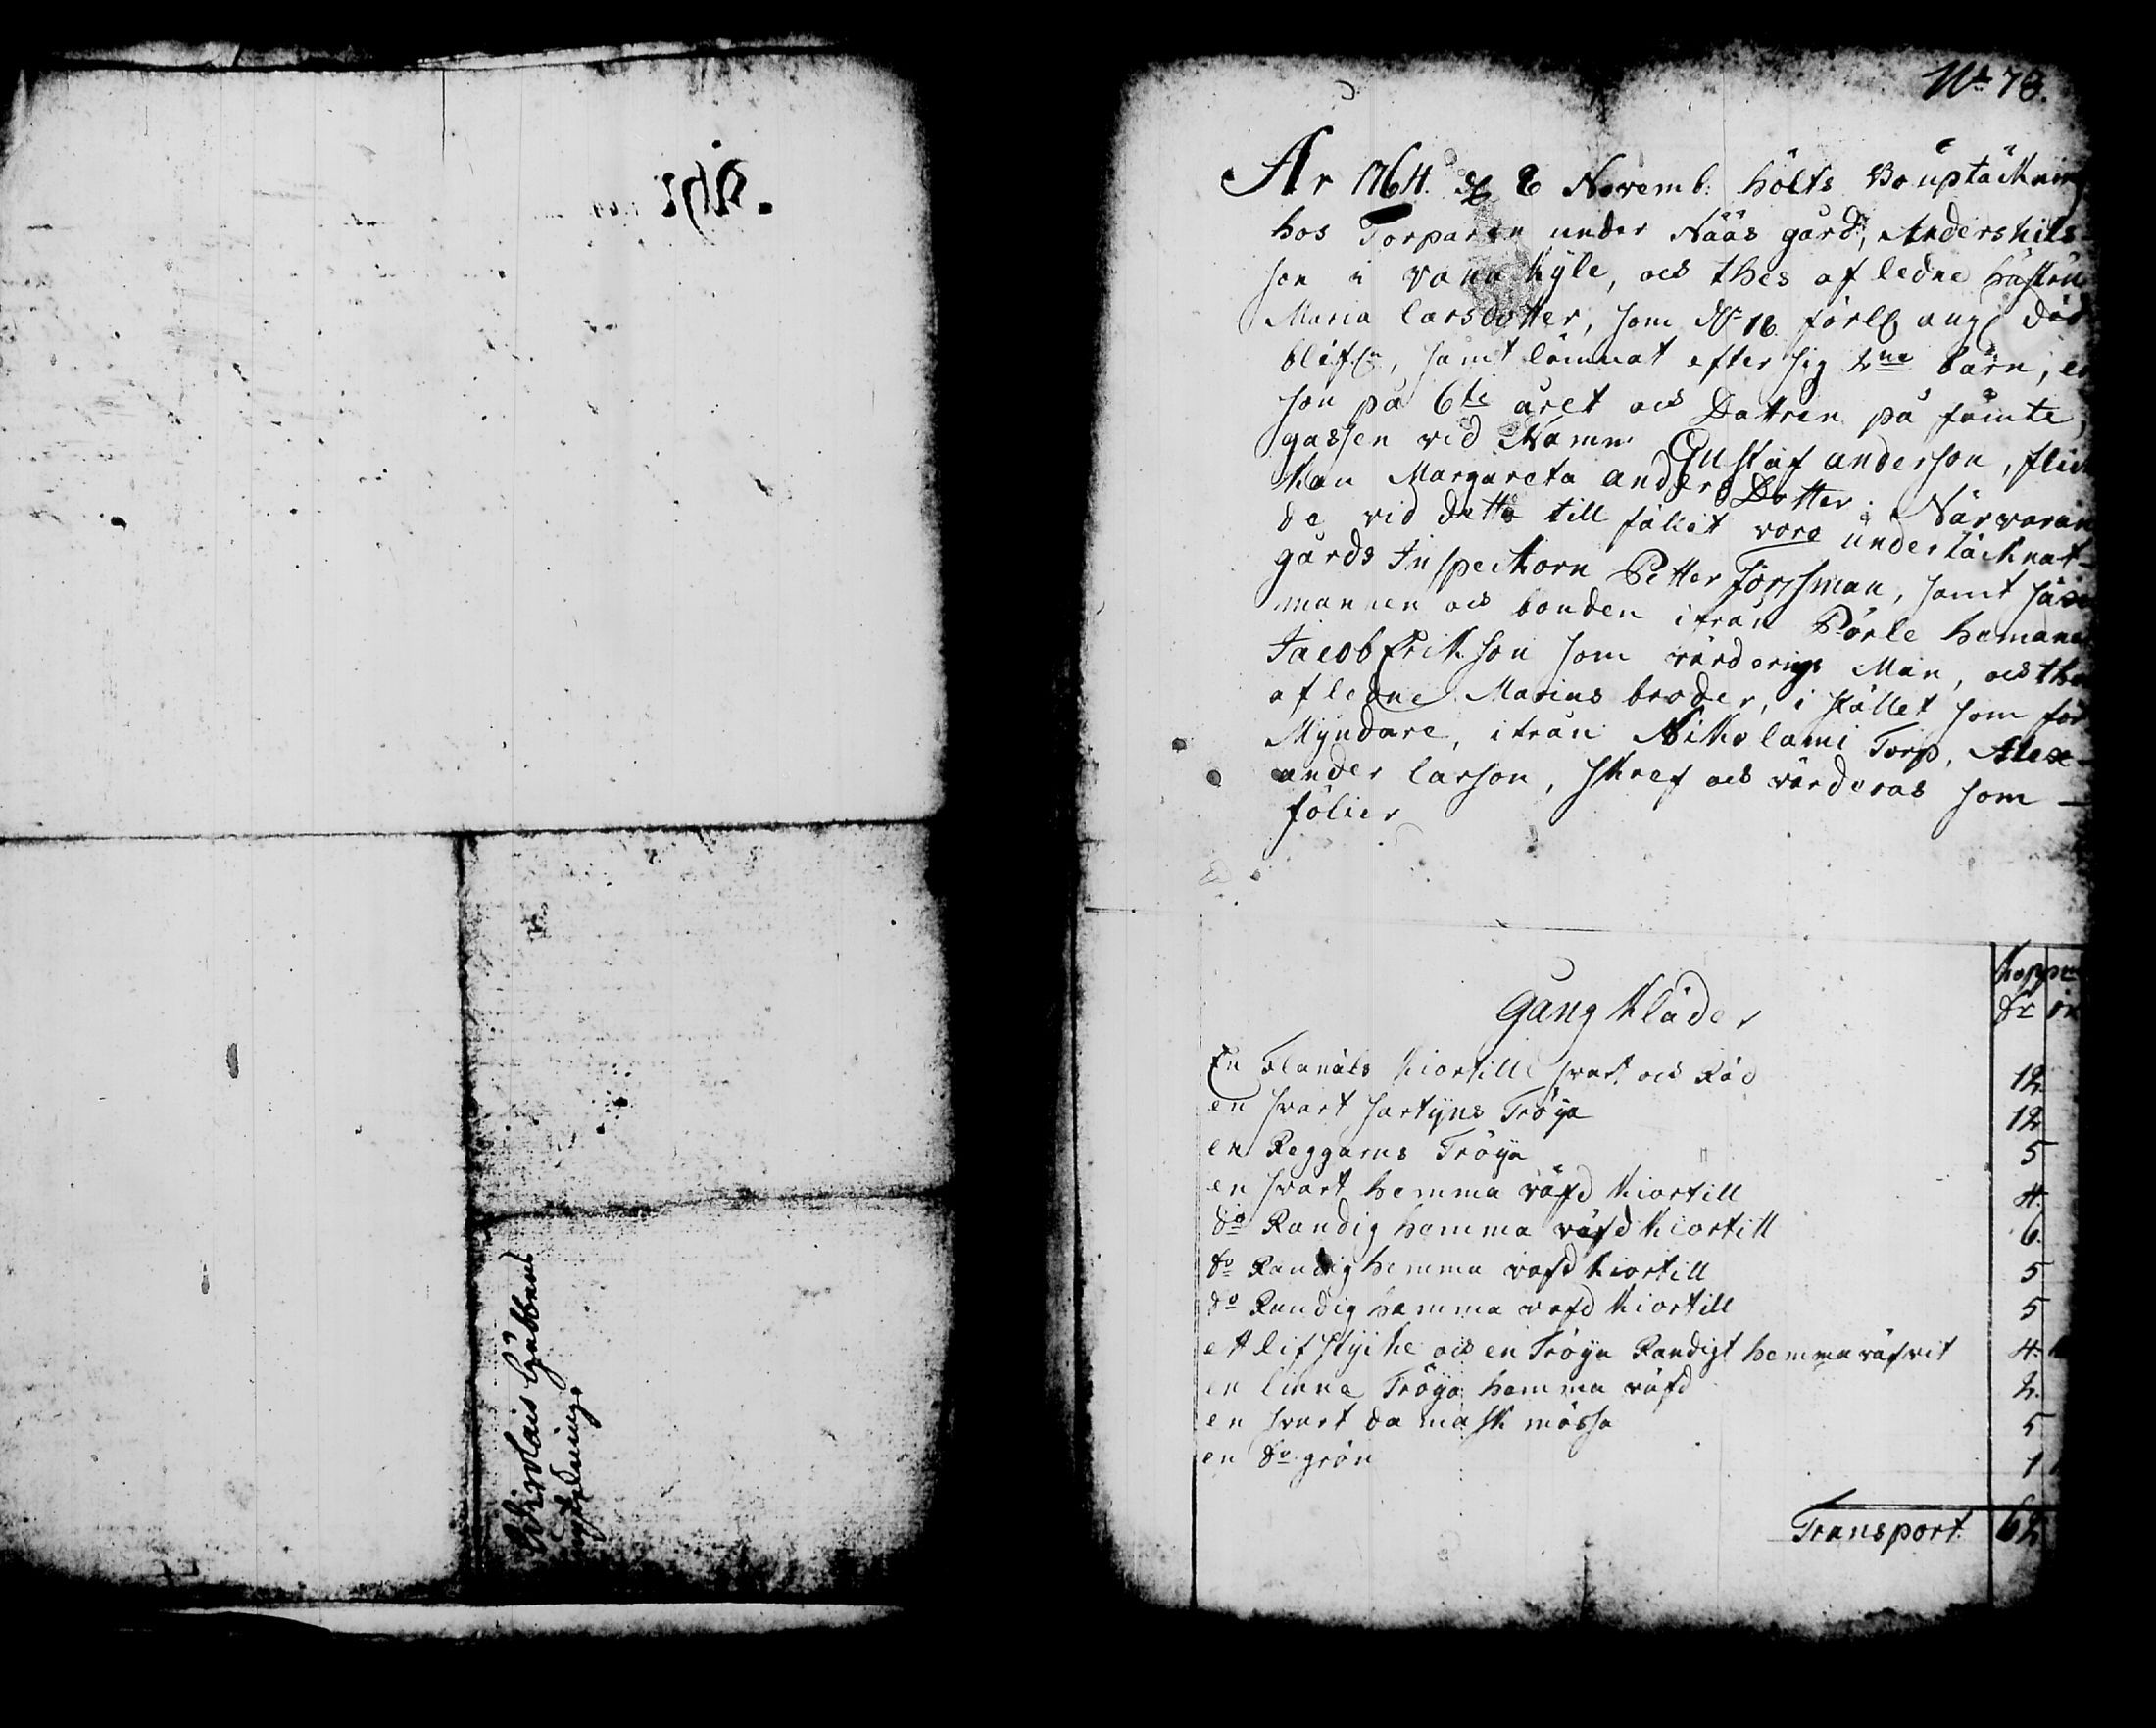 Nicolais Gubbens
utfäning.
No 78.
År 1764. d 8 Novemb: hölts Bouptäckning
hos Torparen under Nääs gård, Anders Nils
son i Vona Kyle, och thes afledne hustru
Maria Larsdotter, som d 18 förl aug död
blifn, samt lämnat efter sig 2ne barn, en
son på 6te året och Dottren på fämte,
gassen vid Namn Gustaf anderson, flic
kan Margareta anders Dotter. Närvaran
de vid detta till fället vore undertäcknat
gårds Inspecktorn Petter Forssman, samt
mannen och bonden ifrån Pörle
Jacob Erikson som värderings Män, och
afledne Marias broder, i stället som för
Myndare, ifrån Nikolami Torp, Alex-
ander larson, skref och värderas som —
fölier
koppar
dr ör
Gång kläder
En Flanäls kiortill svart och Röd 12
en svart sartyns Tröya 12
en Reggarns Tröya 5
en svart hemma väfd kiortill 4.
do Randig hemma väfd kiortill 6.
do Randig hemma väfd kiortill 5
do Randig hemma väfd kiortill 5
et lifstycke och en Tröya Randigt hemma väfvit 4.
en linne Tröya hemma väfd 2.
en svart damask mössa 5
en do grön 1
Transport 62